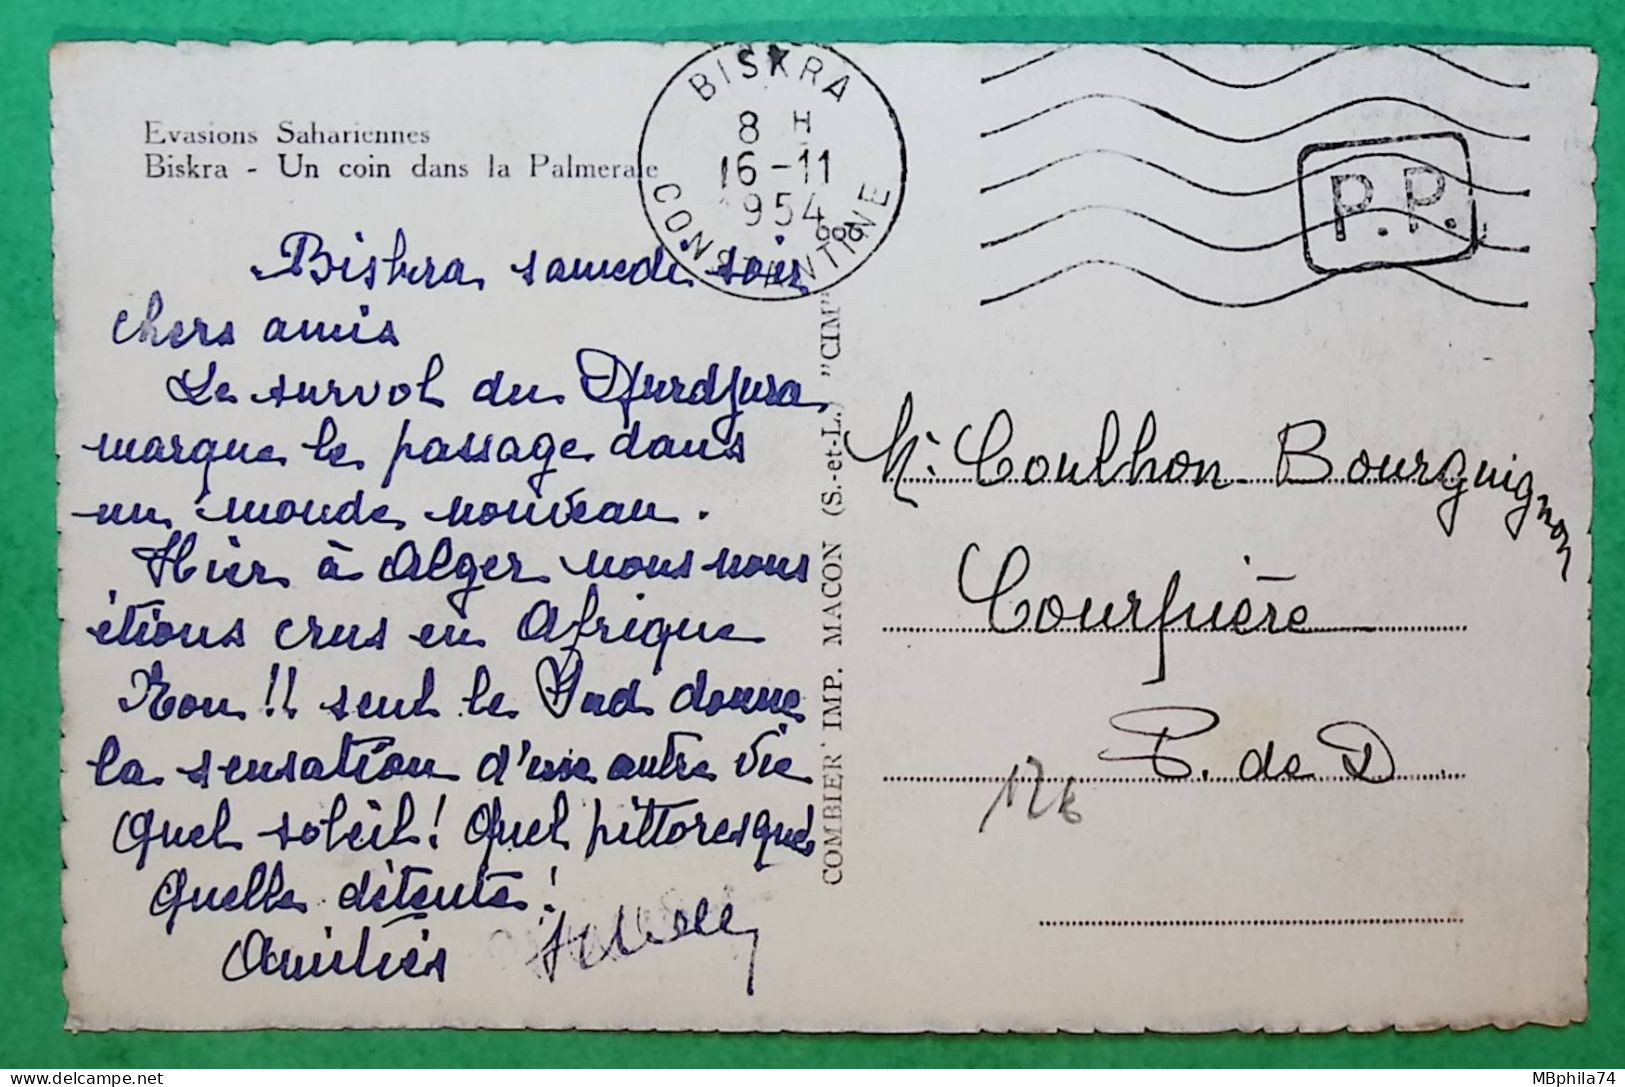 Evasions Sahariennes
Biskra - Un coin dans la Palmeraie
BISKRA
8 H
16-11
1954
CONSTANTINE
P.P.
Biskra samedi soir
chers amis
Le survol du Djurdjura
marque le passage dans
un monde nouveau.
Hier à Alger nous nous
étions crus en Afrique
Non !! seul le Sud donne
la sensation d'une autre vie
Quel soleil! Quel pittoresque
Quelle détente!
Amitiés
COMBIER IMP. MACON (S.-et-L.) "CIM"
M. Coulhon-Bourguignon
Courpière
P. de D
MBphila74